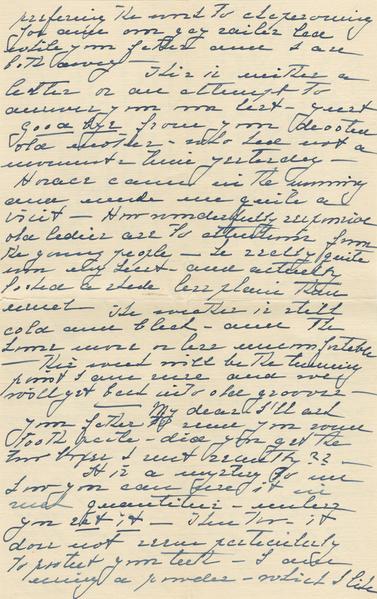 preferring the word to chaperoning
for and our gay sailor lad
while your father and I are
both away —
This is neither a
letter or an attempt to
answer your nor last — just
good bye from your devoted
old mother — who had not a
moments time yesterday —
Horace came in the morning
and made me quite a
visit — How wonderfully responsive
old ladies are to attentions from
the young people — he really quite
won my heart — and actually
looked a shade less plain than
usual — The weather is still
cold and bleak — and the
more or less uncomfortable
— This week will be the turning
point I am sure and we
will get back into old grooves —
My dear I'll ask
your father to send you some
tooth paste — did you get the
two boxes I sent recently ?? —
It is a mystery to me
how you can use it in
such quantities — unless
you eat it — Then too — it
does not seem particularly
to protect your teeth — I am
using a powder — which I like